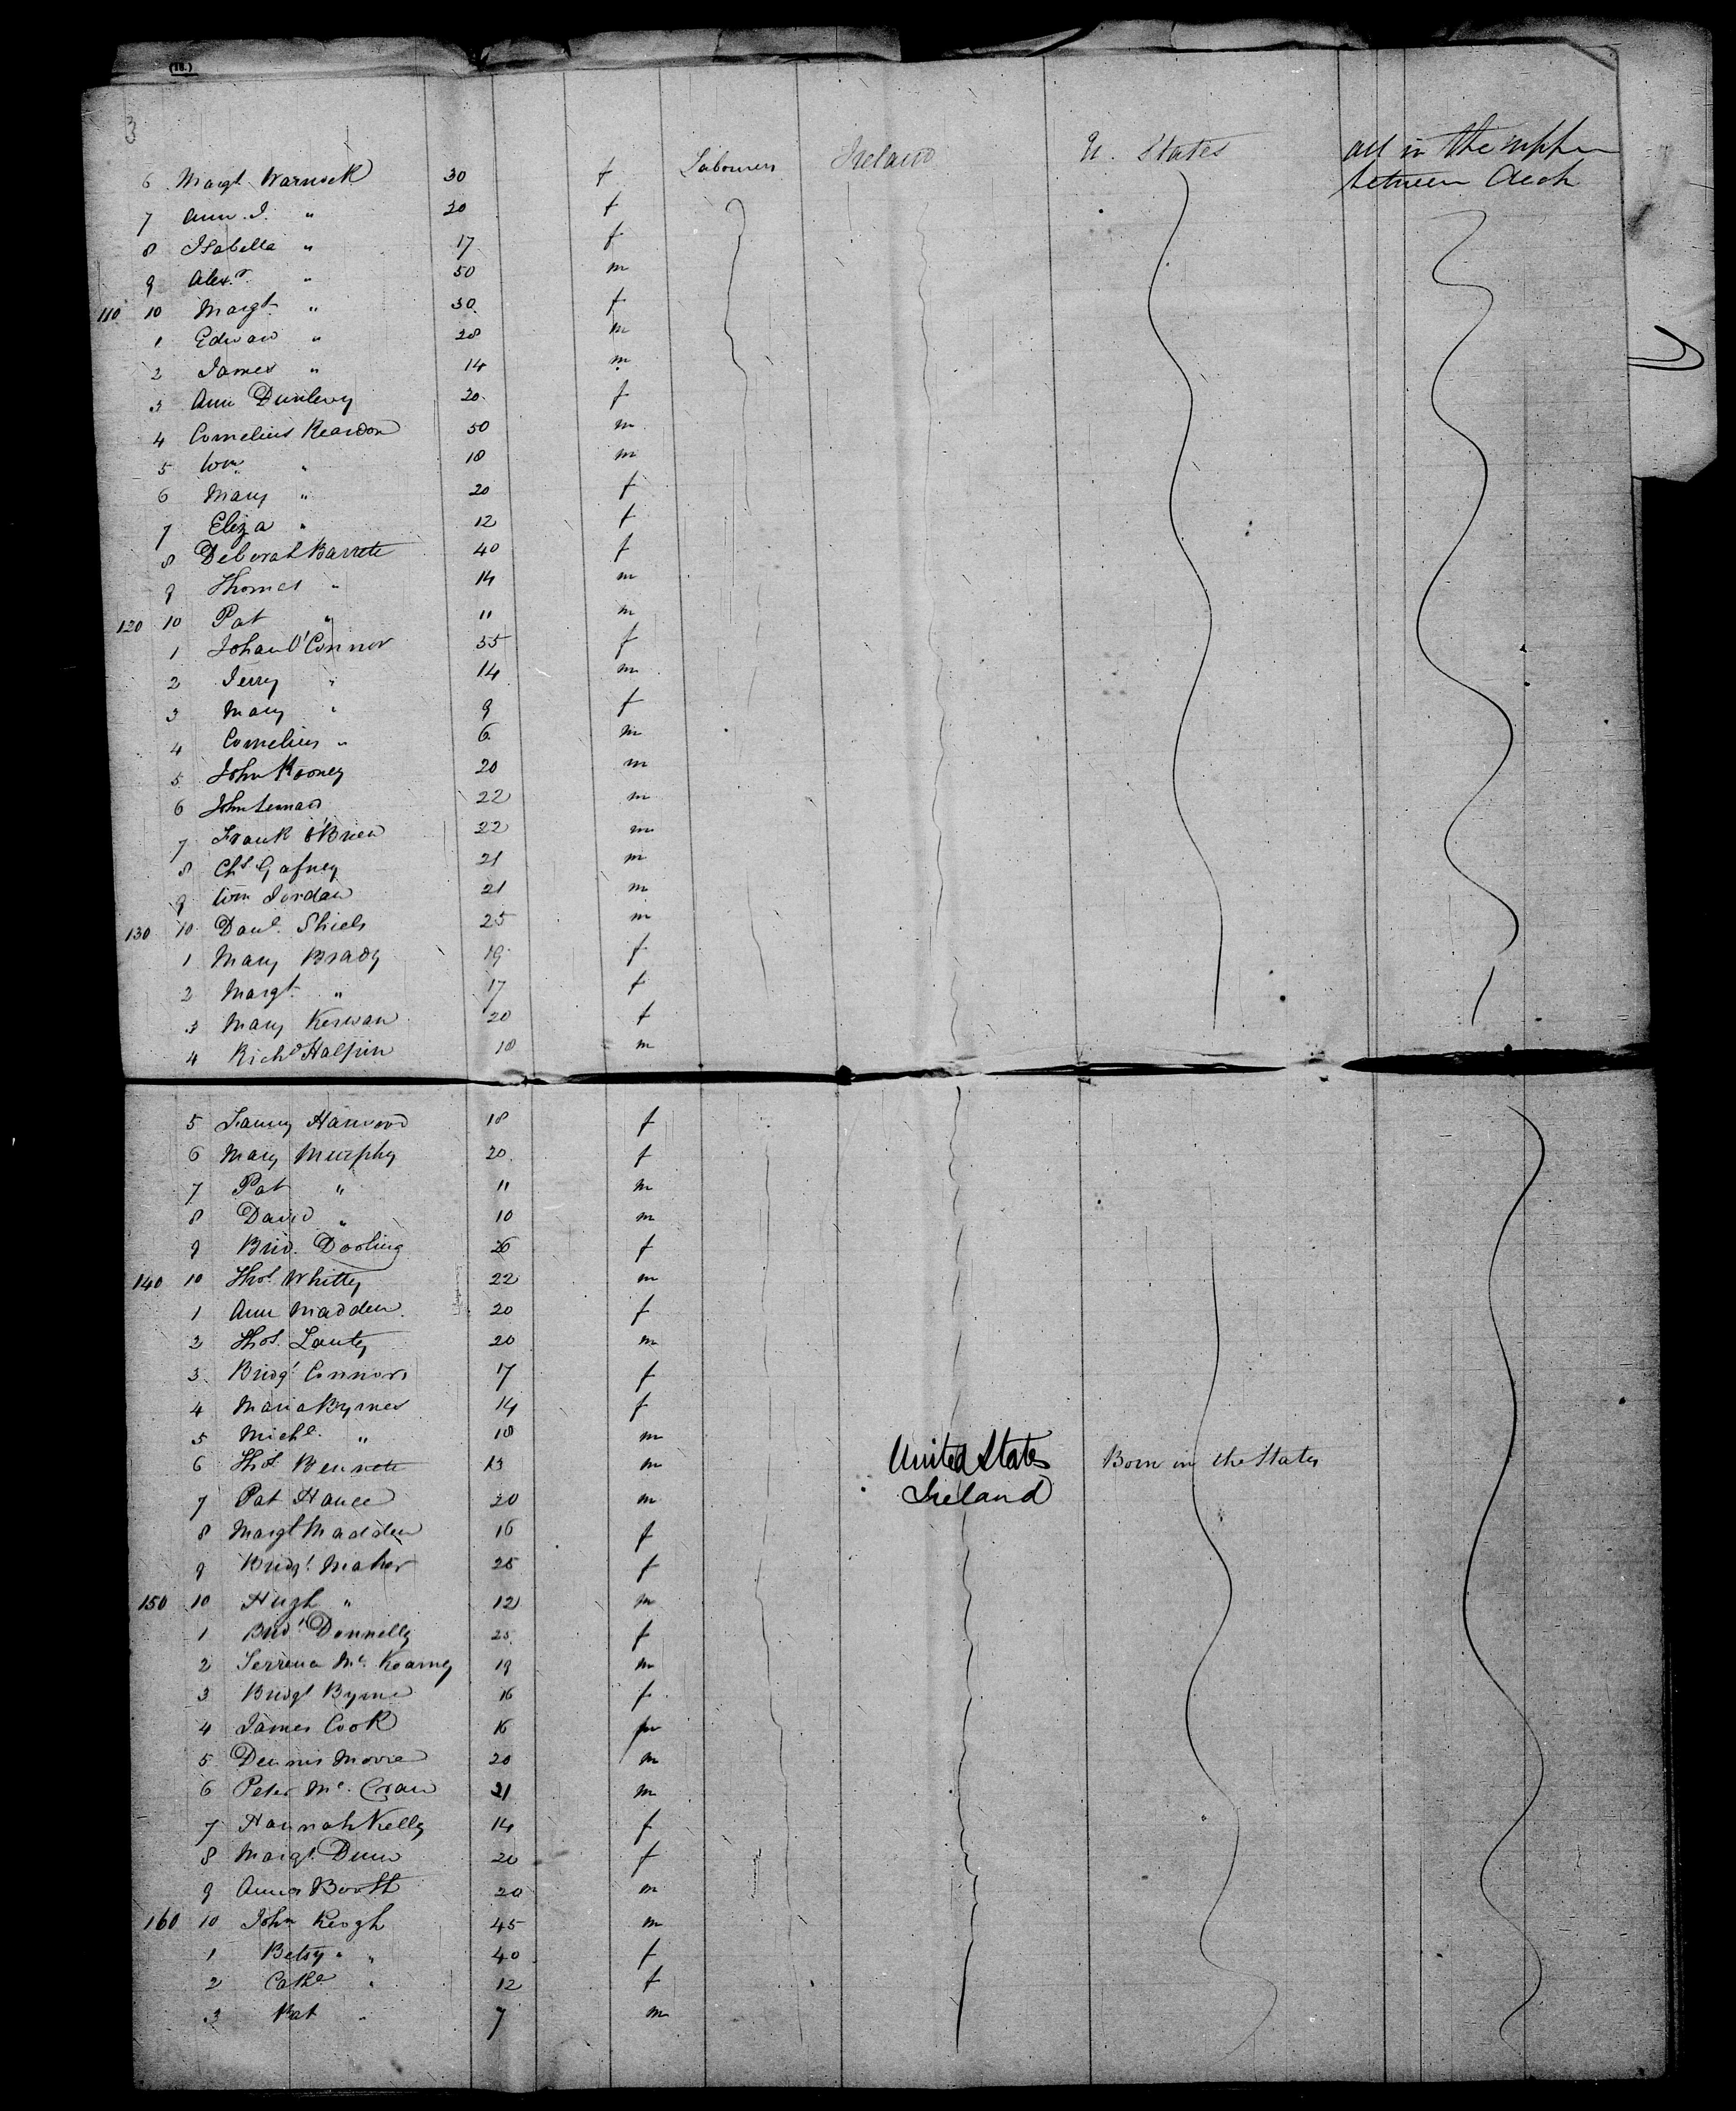 (18.)
3
6 Margt Warnock 30 f Labourers Ireland U. States all in the upper
between deck
7 Ann J. " 20 f
8 Isabella " 17 f
9 Alexr " 50 m
110 10 Margt " 30 f
1 Edward " 28 m
2 James " 14 m
3 Ann Dunlevy 20 f
4 Cornelius Reardon 50 m
5 Wm " 18 m
6 Mary " 20 f
7 Eliza " 12 f
8 Deborah Barrett 40 f
9 Thomas " 14 m
120 10 Pat " 11 m
1 Johan O'Connor 35 f
2 Jerry " 14 m
3 Mary " 9 f
4 Cornelius " 6 m
5 John Rooney 20 m
6 John 22 m
7 Frank O'Brien 22 m
8 Chs Gafney 21 m
9 Wm Jordan 21 m
130 10 Danl Shiels 25 m
1 Mary Brady 19 f
2 Margt " 17 f
3 Mary Kerwan 20 f
4 Richd Halpin 18 m
5 Fanny Harwood 18 f
6 Mary Murphy 20 f
7 Pat " 11 m
8 David " 10 m
9 Brid. Dooling 26 f
140 10 Thos Whitty 22 m
1 Ann Madden 20 f
2 Thos 20 m
3 Bridgt Connors 17 f
4 Maria Byrnes 14 f
5 Michl " 18 m
6 Thos Bennett 13 m United States Born in the States
7 Pat 20 m Ireland
8 Margt Madden 16 f
9 Bridgt Maher 25 f
150 10 Hugh " 12 m
1 Bridt Donnelly 25 f
2 Mc Kearney 19 m
3 Bridgt Byrne 16 f
4 James Cook 16 m
5 Dennis Moore 20 m
6 Peter Mc Cran 21 m
7 Hannah Kelly 14 f
8 Margt Dunn 20 f
9 Booth 20 m
160 10 John Keogh 45 m
1 Betsy " 40 f
2 Cathe " 12 f
3 Pat " 7 m